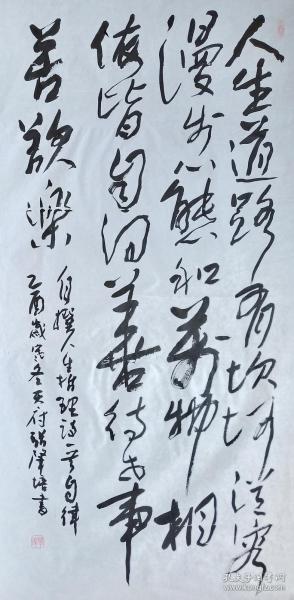 人生道路有坎坷從容
漫步心態和萬物相
依皆自善待世事
樂
自撰人生哲理詩一首自律
乙酉歲寒冬天府張澤培書